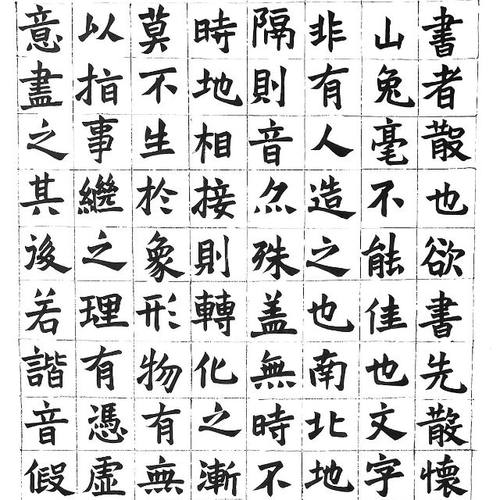 書者散也欲書先散懷
山兔毫不能佳也文字
非有人造之也南北地
隔則音亦殊盖無時不
時地相接則轉化之漸
莫不生於象形物有無
以指事繼之理有憑虛
意盡之其後若諧音假